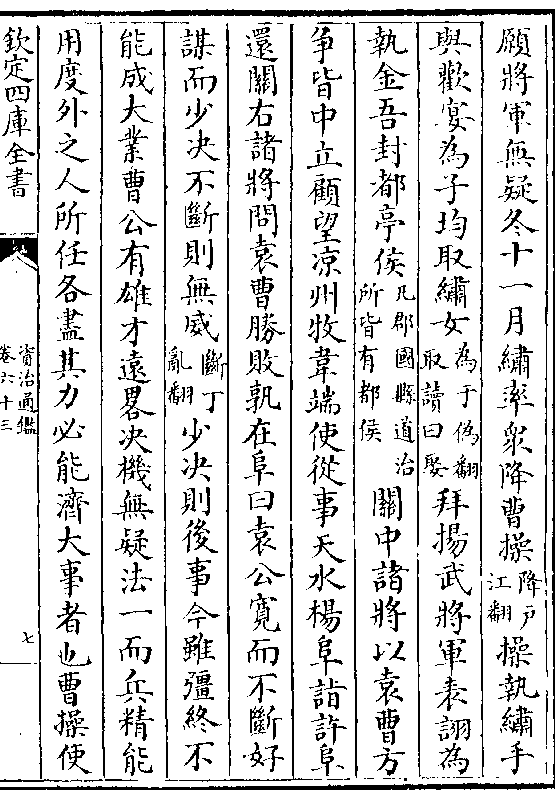 願將軍無疑冬十一月繡率衆降曹操降户江翻操執繡手
與歡宴為子均取繡女為于偽翻取讀曰娶拜揚武將軍表詡為
執金吾封都亭侯凡郡國縣道治所皆有都侯關中諸將以袁曹方
爭皆中立顧望凉州牧韋端使從事天水楊阜詣許阜
還關右諸將問袁曹勝敗孰在阜曰袁公寛而不斷好
謀而少决不斷則無威斷丁亂翻少决則後事今雖彊終不
能成大業曹公有雄才遠畧决機無疑法一而兵精能
用度外之人所任各盡其力必能濟大事者也曹操使
欽定四庫全書
資治通鑑
卷六十三
七